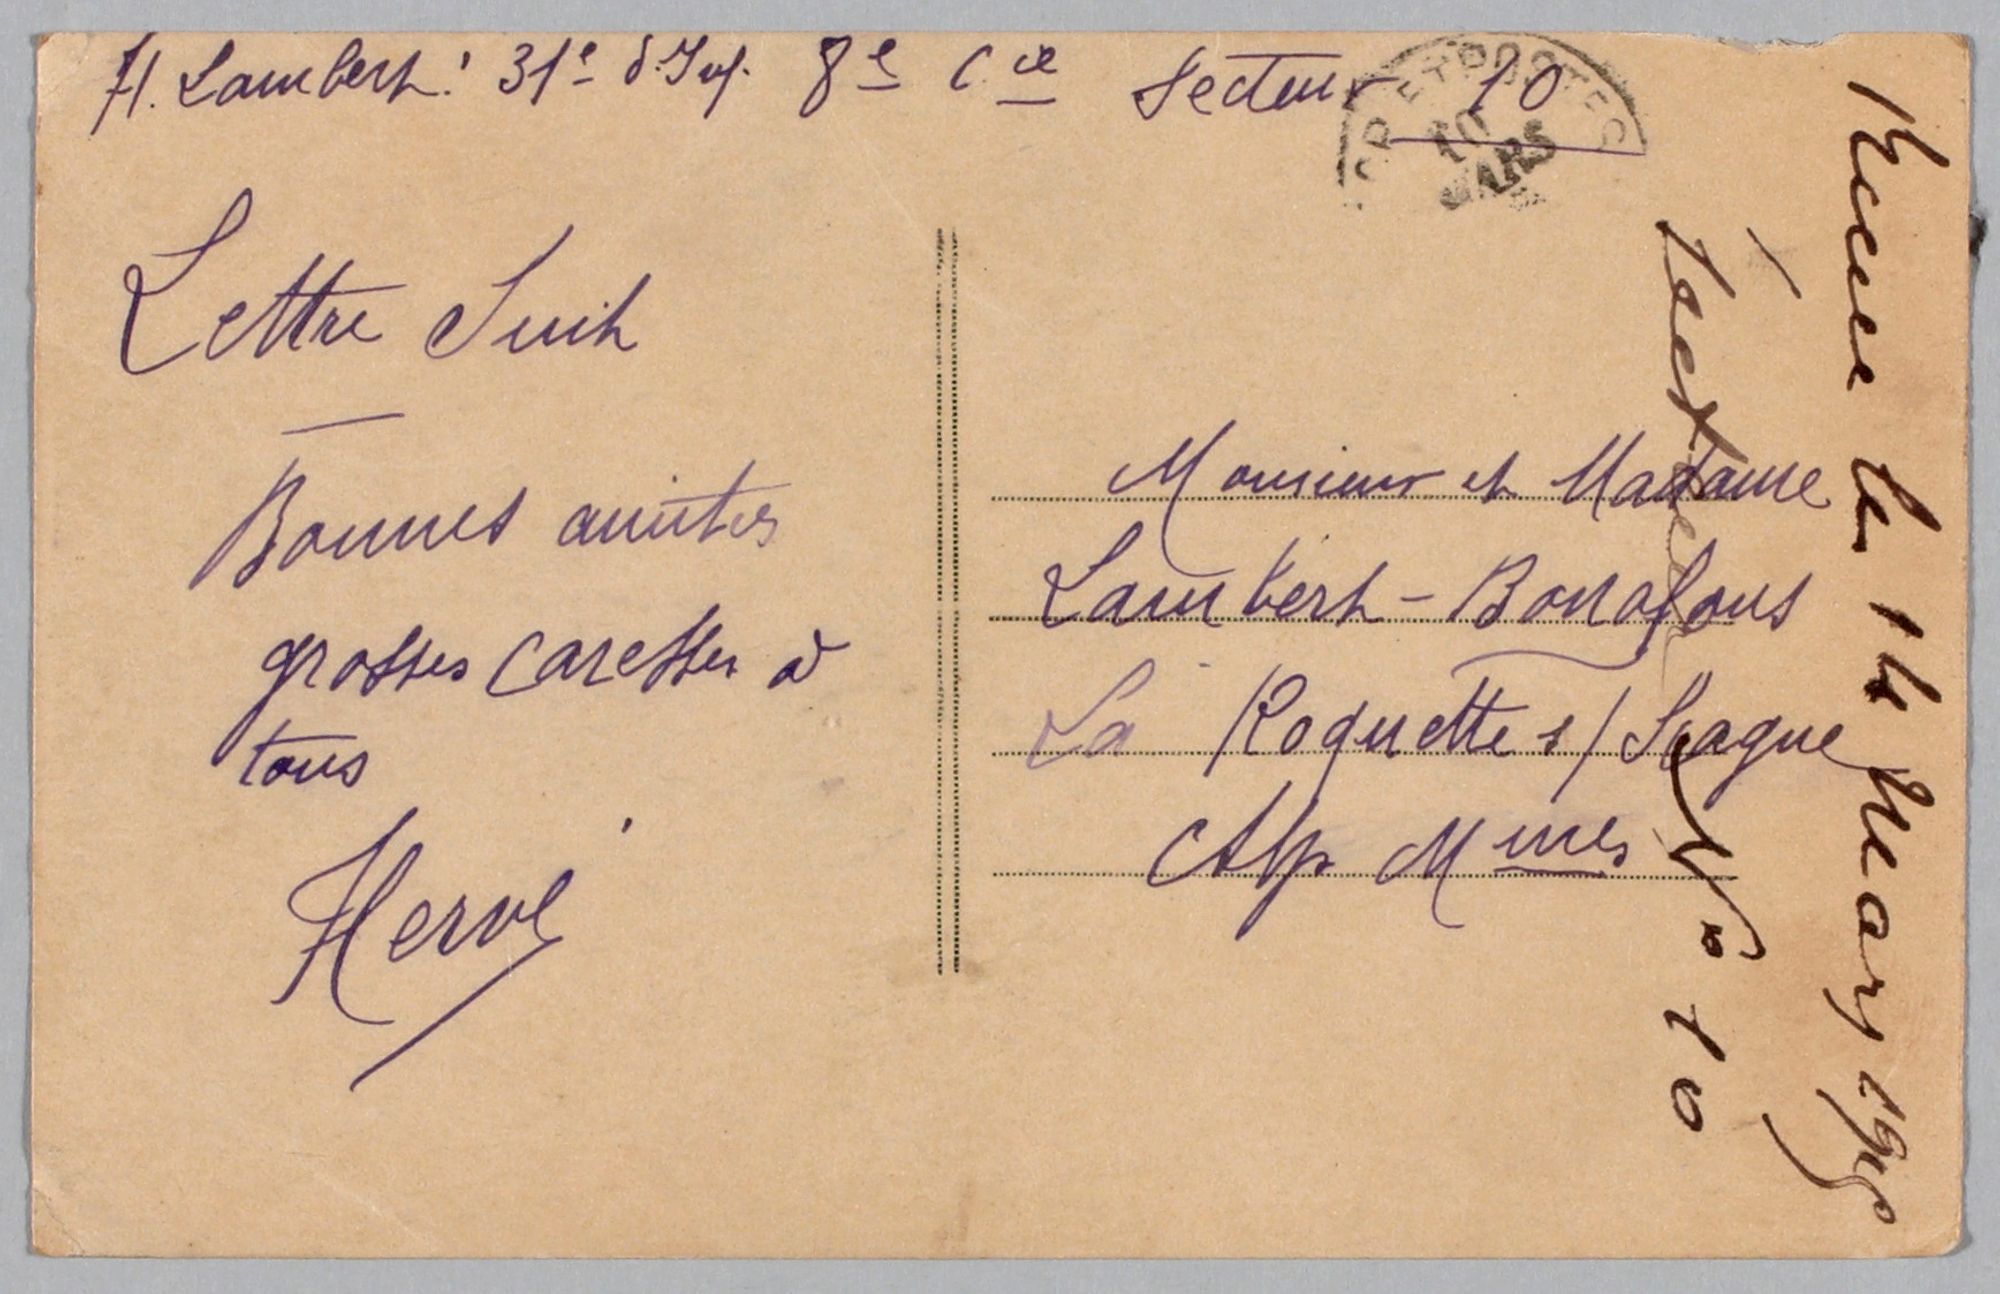 H. Lambert. 31e d'Inf. 8e Cie Secteur 10
TRESOR ET POSTES
10
MARS
Lettre Suit
Bonnes amities
grosses caresses à
tous
Hervé
Monsieur et Madame
Lambert-Bonafous
La Roquette s/ Siagne
Alp Mmes
le 14 Mars
Secteur N° 10